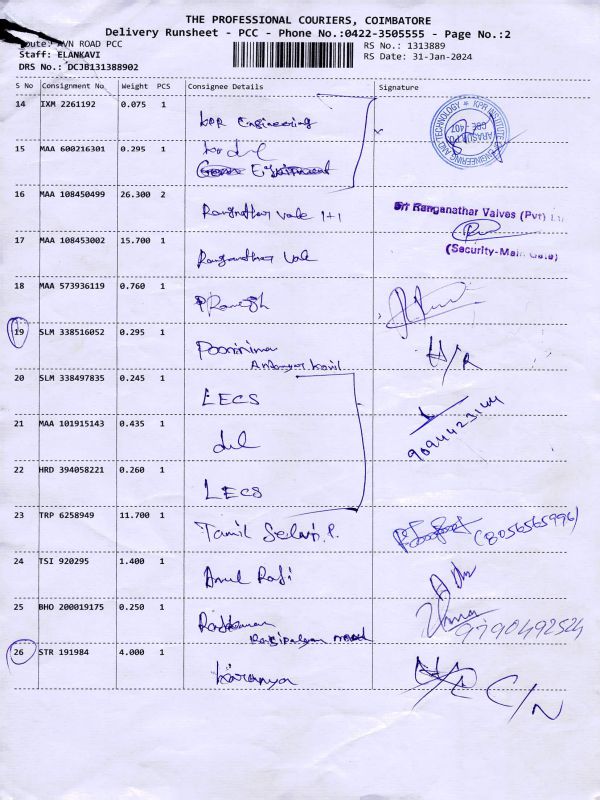 THE PROFESSIONAL COURIERS, COIMBATORE
Delivery Runsheet - PCC - Phone No.:0422-3505555 - Page No.:2
Route: AVN ROAD PCC
RS No.: 1313889
Staff: ELANKAVI
RS Date: 31-Jan-2024
DRS No.: DCJB131388902
S No Consignment No Weight PCS Consignee Details Signature
14 IXM 2261192 0.075 1 KPR Engineering
KPR INSTITUTE OF ENGINEERING AND TECHNOLOGY
15 MAA 600216301 0.295 1
16 MAA 108450499 26.300 2 Ranganathar Valve 1+1
Sri Ranganathar Valves (Pvt) Lt
(Security-Main Gate)
17 MAA 108453002 15.700 1 Ranganathar Valve
18 MAA 573936119 0.760 1 P Ramesh
19 SLM 338516052 0.295 1 Poornima H/R
20 SLM 338497835 0.245 1 LECS
9094423144
21 MAA 101915143 0.435 1
22 HRD 394058221 0.260 1 LECS
23 TRP 6258949 11.700 1 Tamil Selvi.P. (8056565996)
24 TSI 920295 1.400 1 Arul Raji
25 BHO 200019175 0.250 1 Rajkumar
9790492524
26 STR 191984 4.000 1 Karanya C/N